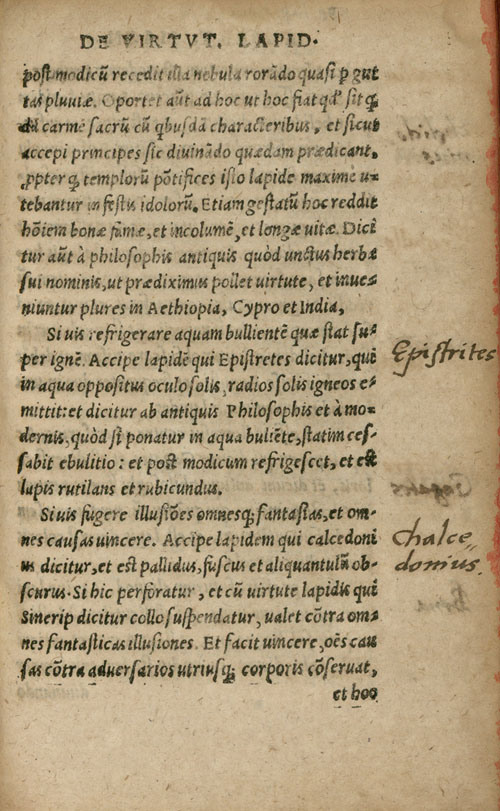 DE VIRTVT. LAPID.
post modicũ recedit illa nebula rorãdo quasi ꝑ gut
tas pluuiæ. Oportet aũt ad hoc ut hoc fiat qđ sit
carmẽ sacrũ cũ qbusdã characteribus, et sicut
accepi principes sic diuinãdo quædam prædicant,
ppter templorũ põtifices isto lapide maxime u-
tebantur in festis idolorũ. Etiam gestatũ hoc reddit
hõiem bonæ famæ, et incolumẽ, et longæ uitæ. Dici
tur aũt à philosophis antiquis quòd unctus herbæ
sui nominis, ut prædiximus pollet uirtute, et inue-
niuntur plures in Aethiopia, Cypro et India,
Si uis refrigerare aquam bullientẽ quæ stat su-
per ignẽ. Accipe lapidẽ qui Epistretes dicitur, quẽ
in aqua oppositus oculo solis, radios solis igneos e-
mittit: et dicitur ab antiquis Philosophis et à mo-
dernis, quòd si ponatur in aqua buliẽte, statim ces-
sabit ebulitio: et post modicum refrigescet, et est
lapis rutilans et rubicundus.
Epistrites
Si uis fugere illusiões omnesq; fantasias, et om-
nes causas uincere. Accipe lapidem qui calcedoni
us dicitur, et est pallidus, fuscus et aliquantulũ ob-
scurus. Si hic perforatur, et cũ uirtute lapidis qui
Sinerip dicitur collo suspendatur, ualet cõtra om-
nes fantasticas illusiones. Et facit uincere, oẽs cau
sas cõtra aduersarios utriusq; corporis cõseruat,
et hoc
Chalce
donius.